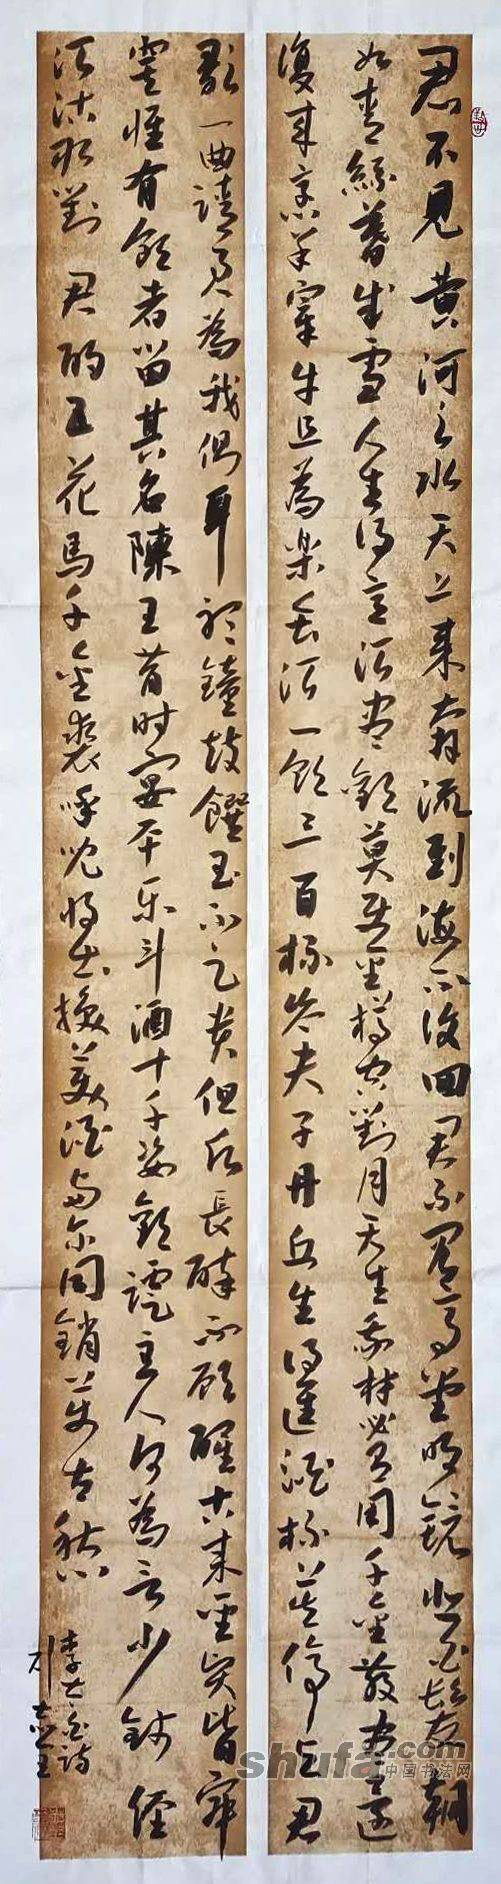 君不見黄河之水天上来奔流到海不復回君不见高堂明镜悲白髮朝
如青絲暮成雪人生得意须盡歡莫使金樽空對月天生我材必有用千金散盡還
復来烹羊宰牛且為楽会须一飲三百杯岑夫子丹丘生将進酒杯莫停与君
歌一曲請君為我傾耳聴鐘鼓饌玉不足贵但願長醉不願醒古来聖賢皆寂
寞惟有飲者留其名陳王昔时宴平乐斗酒十千恣歡謔主人何為言少錢徑
须沽取對君酌五花馬千金裘呼兒将出換美酒与尔同銷萬古愁
李太白詩
shufa.com
中国书法网